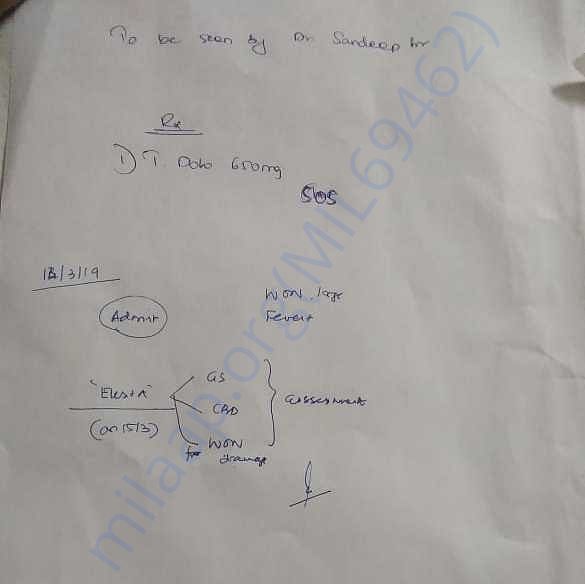 To be seen by Dr. Sandeep
Rx
1) T. Dolo 650mg
SOS
14/3/19
Admit
WON large
Fever+
"EUS±A"
(on 15/3)
GS
CBD
WON
for drainage
assessment
milaap.org(MIL69462)